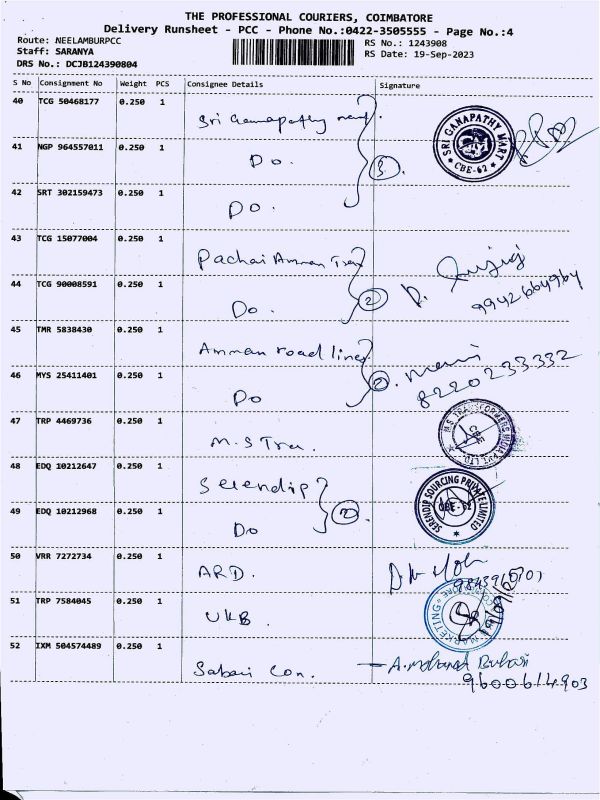 THE PROFESSIONAL COURIERS, COIMBATORE
Delivery Runsheet - PCC - Phone No.:0422-3505555 - Page No.:4
Route: NEELAMBURPCC
Staff: SARANYA
DRS No.: DCJB124390804
RS No.: 1243908
RS Date: 19-Sep-2023
S No Consignment No Weight PCS Consignee Details Signature
40 TCG 50468177 0.250 1 Sri Ganapathy
SRI GANAPATHY MART
* CBE-62 *
41 NGP 964557011 0.250 1 Do. 3.
42 SRT 302159473 0.250 1 Do.
43 TCG 15077004 0.250 1 Pachai Amman
44 TCG 90008591 0.250 1 Do. 2
9942664964
45 TMR 5838430 0.250 1 Amman road lines
46 MYS 25411401 0.250 1 Do 2. Mani
8220233332
47 TRP 4469736 0.250 1 M.S Tra.
M.S. TRANSFORMERS INDIA PVT. LTD.
CBE
48 EDQ 10212647 0.250 1 Serendip
SERENDIP SOURCING PRIVATE LIMITED
CBE-62
49 EDQ 10212968 0.250 1 Do 2.
50 VRR 7272734 0.250 1 ARD.
51 TRP 7584045 0.250 1 UKB
MARKETING
52 IXM 504574489 0.250 1 Sabari Con.
9600614903